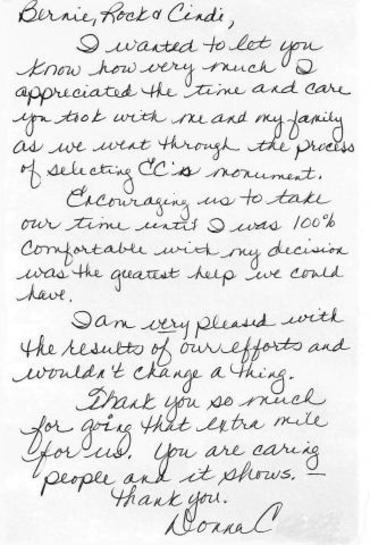 Bernie, Rock & Cindi,
I wanted to let you
know how very much I
appreciated the time and care
you took with me and my family
as we went through the process
of selecting CC's monument.
Encouraging us to take
our time until I was 100%
comfortable with my decision
was the greatest help we could
have.
I am very pleased with
the results of our efforts and
wouldn't change a thing.
Thank you so much
for going that extra mile
for us. You are caring
people and it shows. —
Thank you.
Donna C